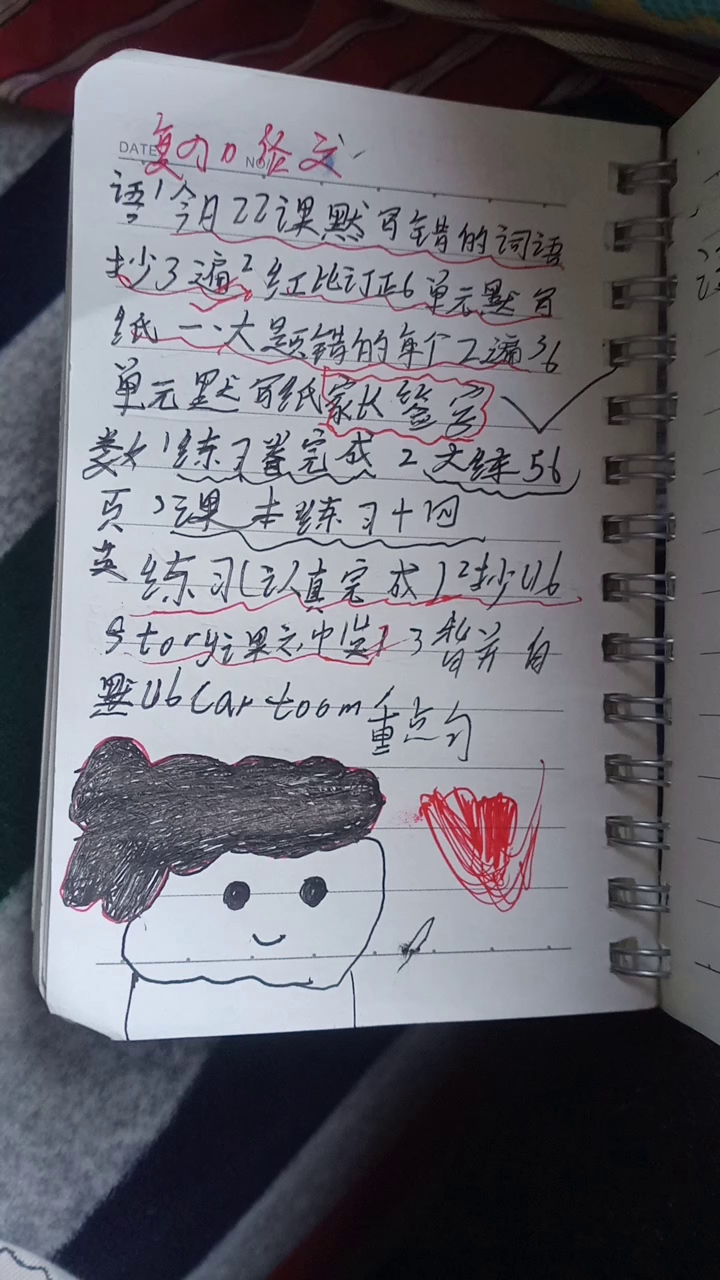 复习
DATE NO
语1今日22课默写错的词语
抄3遍2红笔订正6单元默写
纸一、大题错的每个2遍36
单元默写纸家长签字
数1练习卷完成2大练56
页3课本练习十四
英 练习(认真完成)2抄U6
Story课文,中英1 3暂并自
默U6 Cartoom 重点句